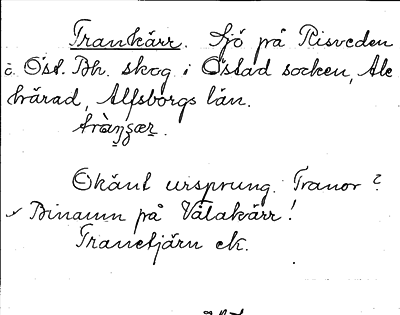 Trankärr. Sjö på Risveden
Öst. Bh. skog i Östad socken, Ale
härad, Älfsborgs län.
Okänt ursprung. Tranor?
Binamn på Våtakärr!
Tranetjärn ek.